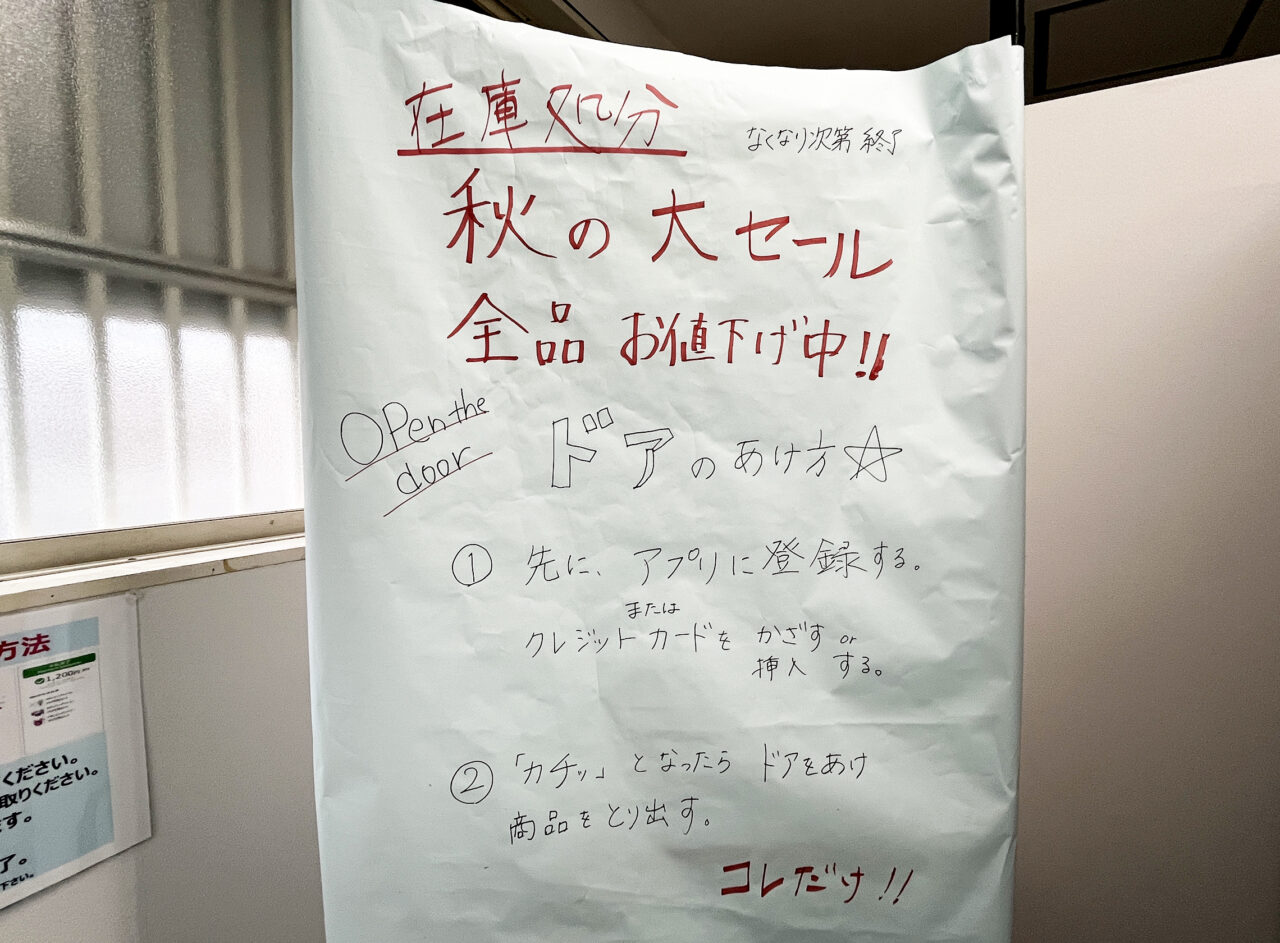 在庫処分
なくなり次第終了
秋の大セール
全品 お値下げ中!!
OPen the
door
ドアのあけ方☆
① 先に、アプリに登録する。
または
クレジットカードを かざす or
挿入 する。
② 「カチッ」となったら ドアをあけ
商品をとり出す。
コレだけ!!
方法
1,200円
ください。
取りください。
ます。
了。
下さい。